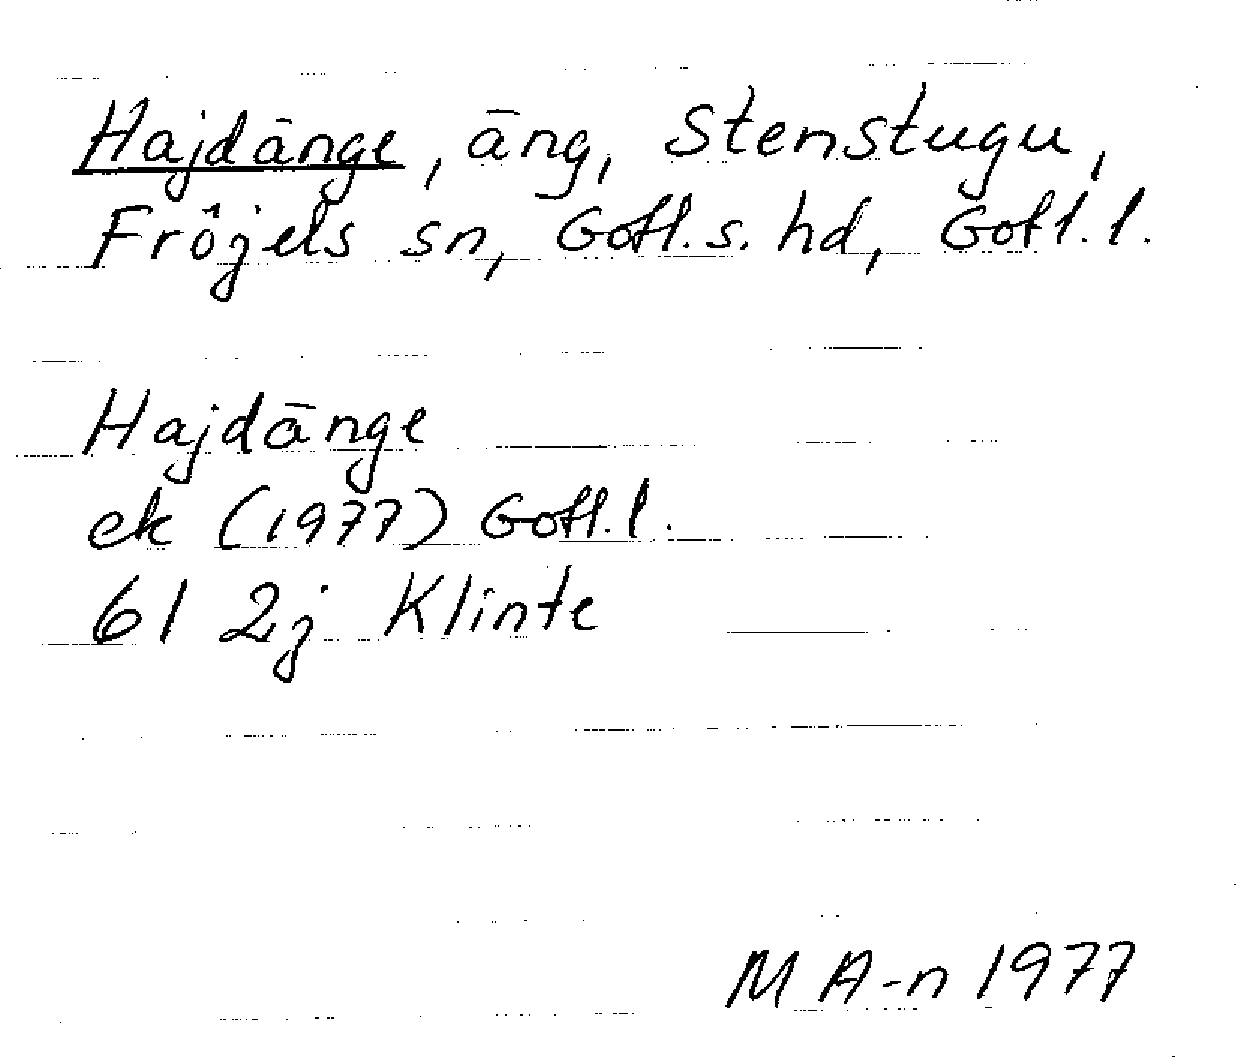 Hajdänge, äng, Stenstugu,
Fröjels sn, Gotl. s. hd, Gotl. l.
Hajdänge
ek (1977) Gotl. l.
61 2j Klinte
M A-n 1977